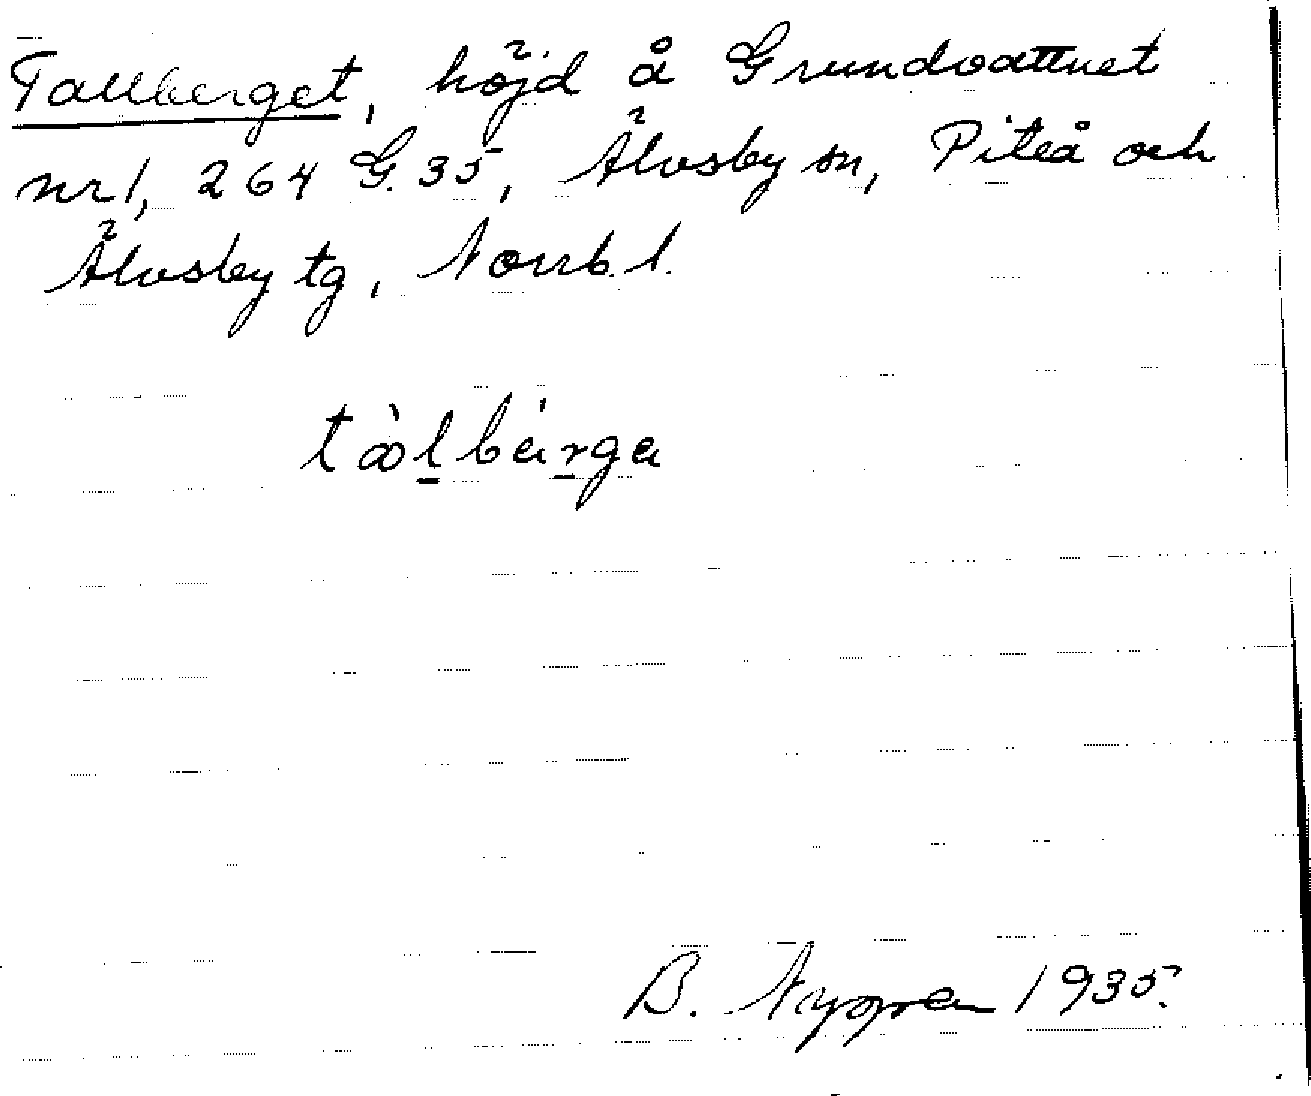 Tallberget, höjd å Grundvattnet
nr 1, 264 G. 35, Älvsby sn, Piteå och
Älvsby tg, Norrb. l.
tàlbárga
B. Nygren 1935.